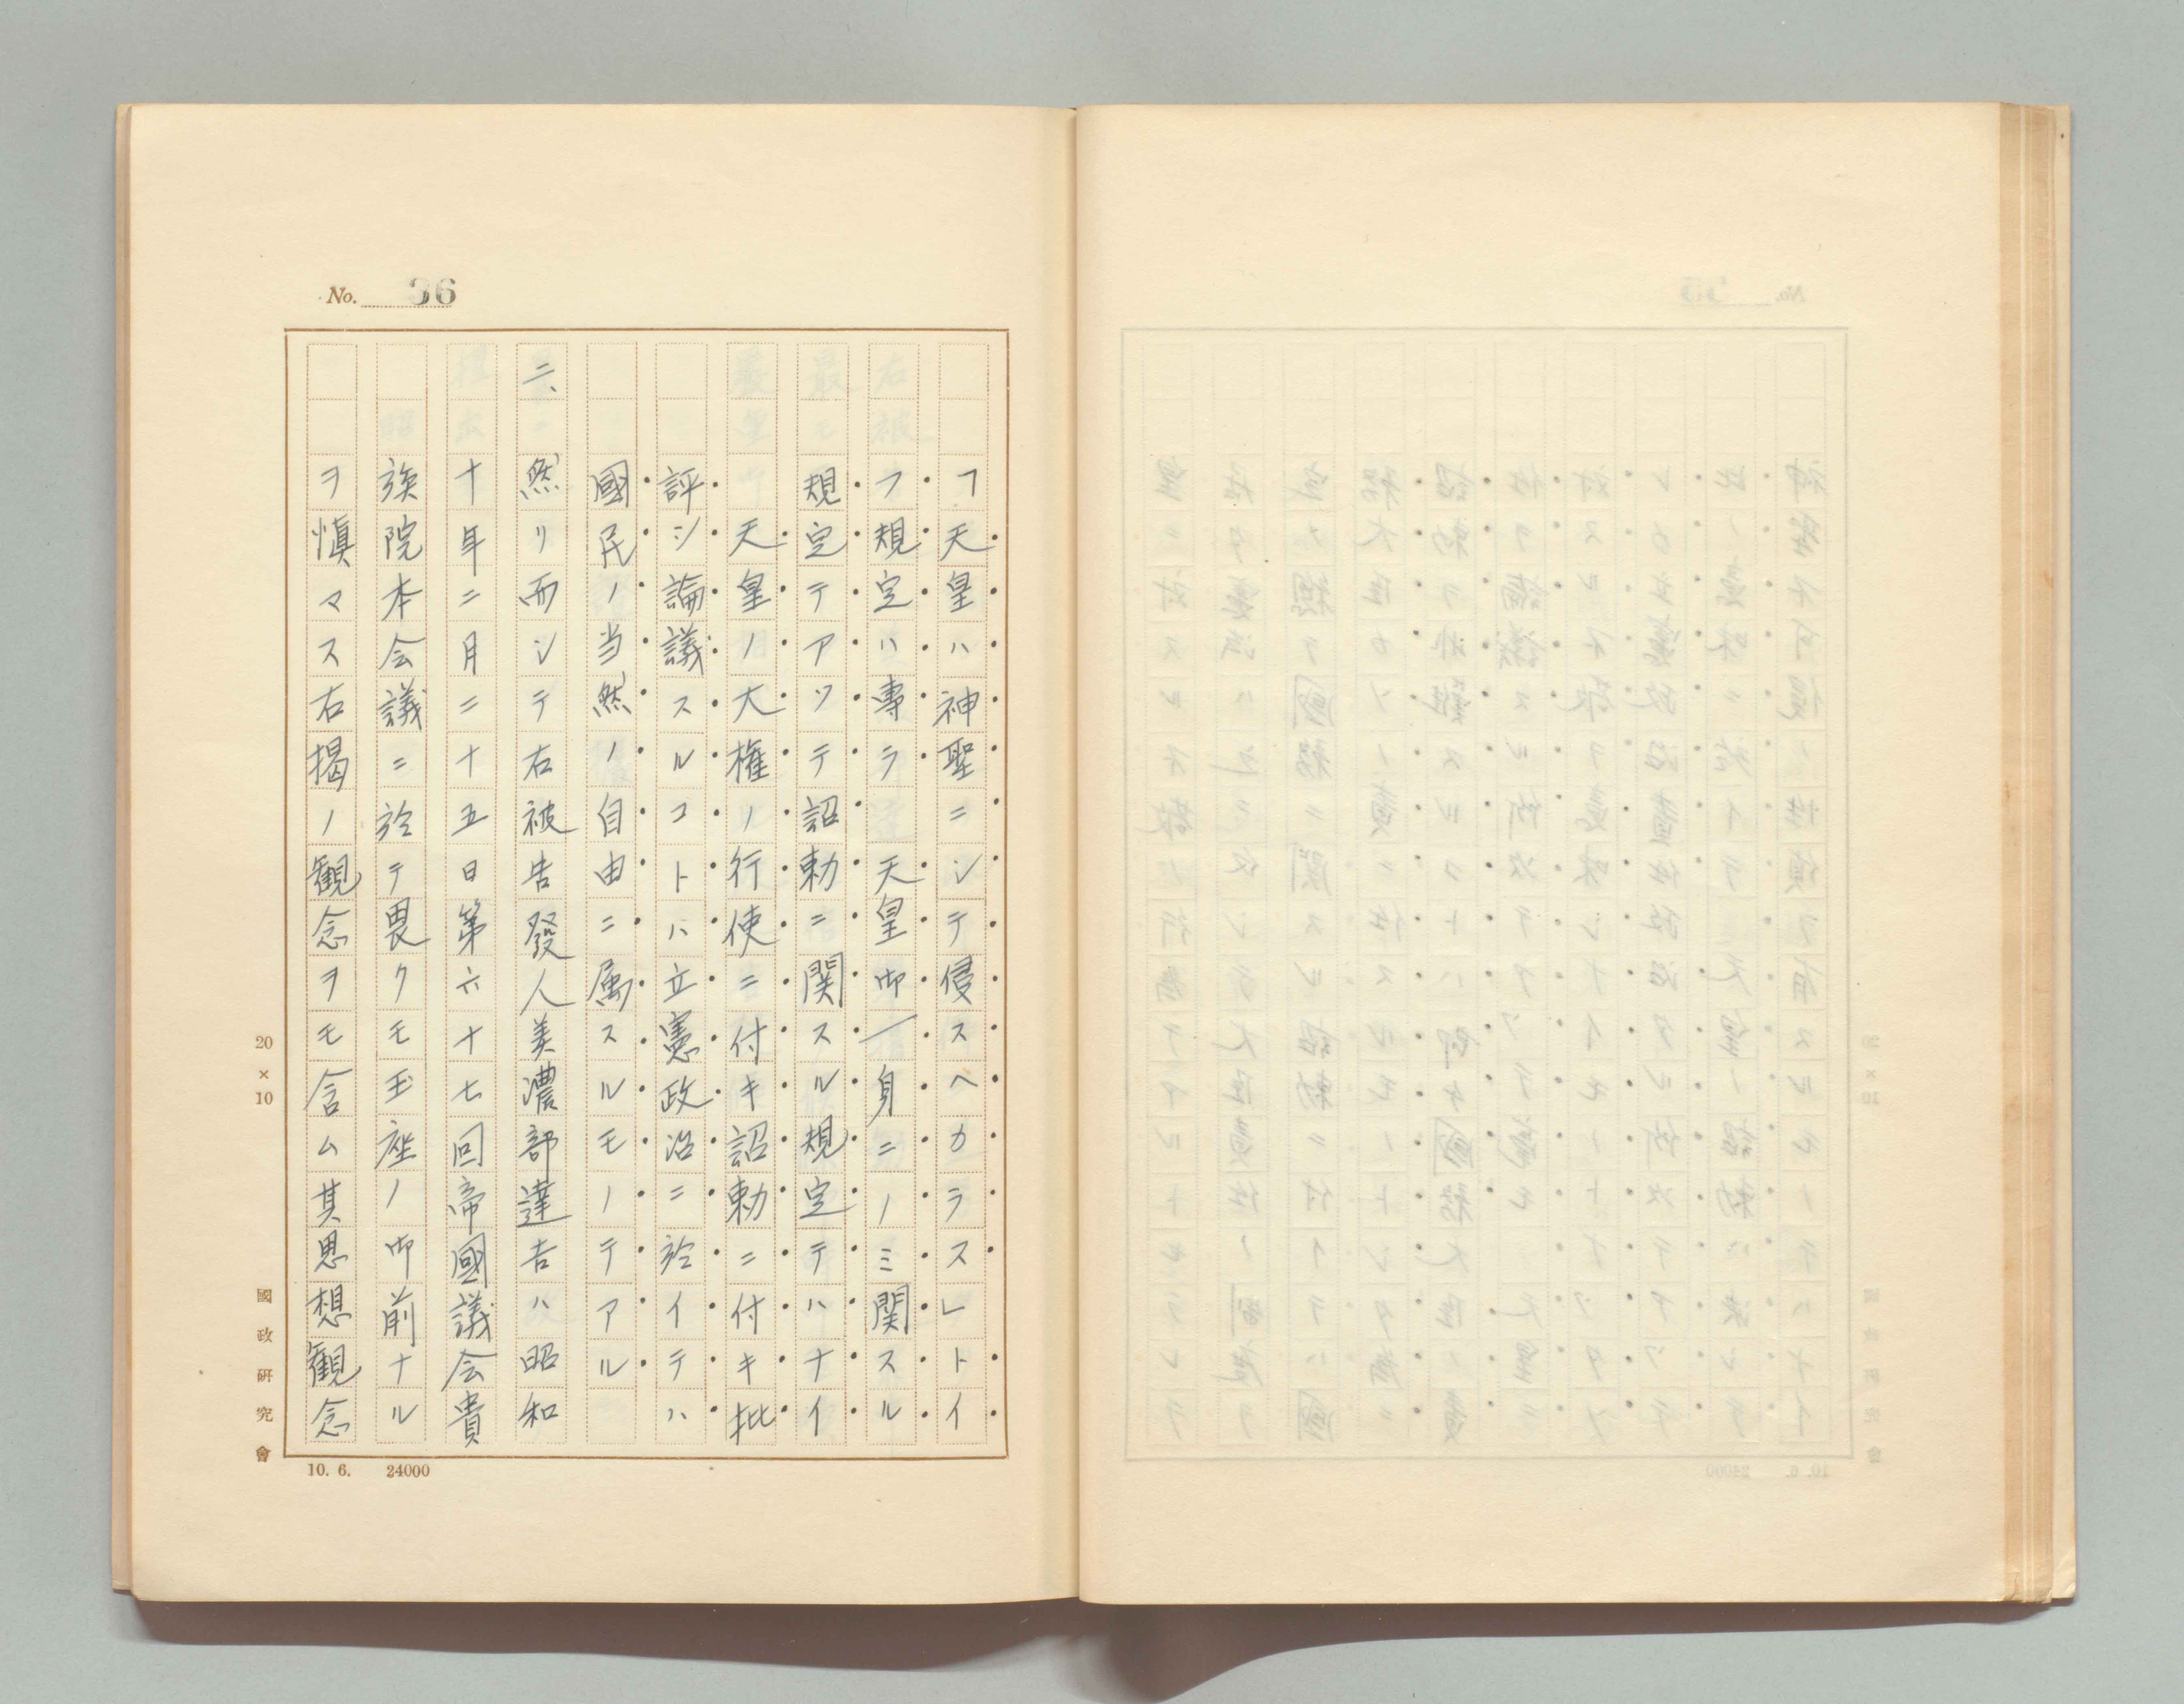 No. 36
「天皇ハ神聖ニシテ侵スヘカラスレトイ
フ規定ハ專ラ 天皇御一身ニノミ関スル
規定テアツテ詔勅ニ関スル規定テハナイ
天皇ノ大権ノ行使ニ付キ詔勅ニ付キ批
評シ論議スルコトハ立憲政治ニ於イテハ
國民ノ当然ノ自由ニ属スルモノテアル
二、然リ而シテ右被告発人美濃部達吉ハ昭和
十年二月二十五日第六十七回帝國議会貴
族院本会議ニ於テ畏クモ玉座ノ御前ナル
ヲ慎マス右掲ノ観念ヲモ含ム其思想観念
20×10
國政研究會
10. 6. 24000